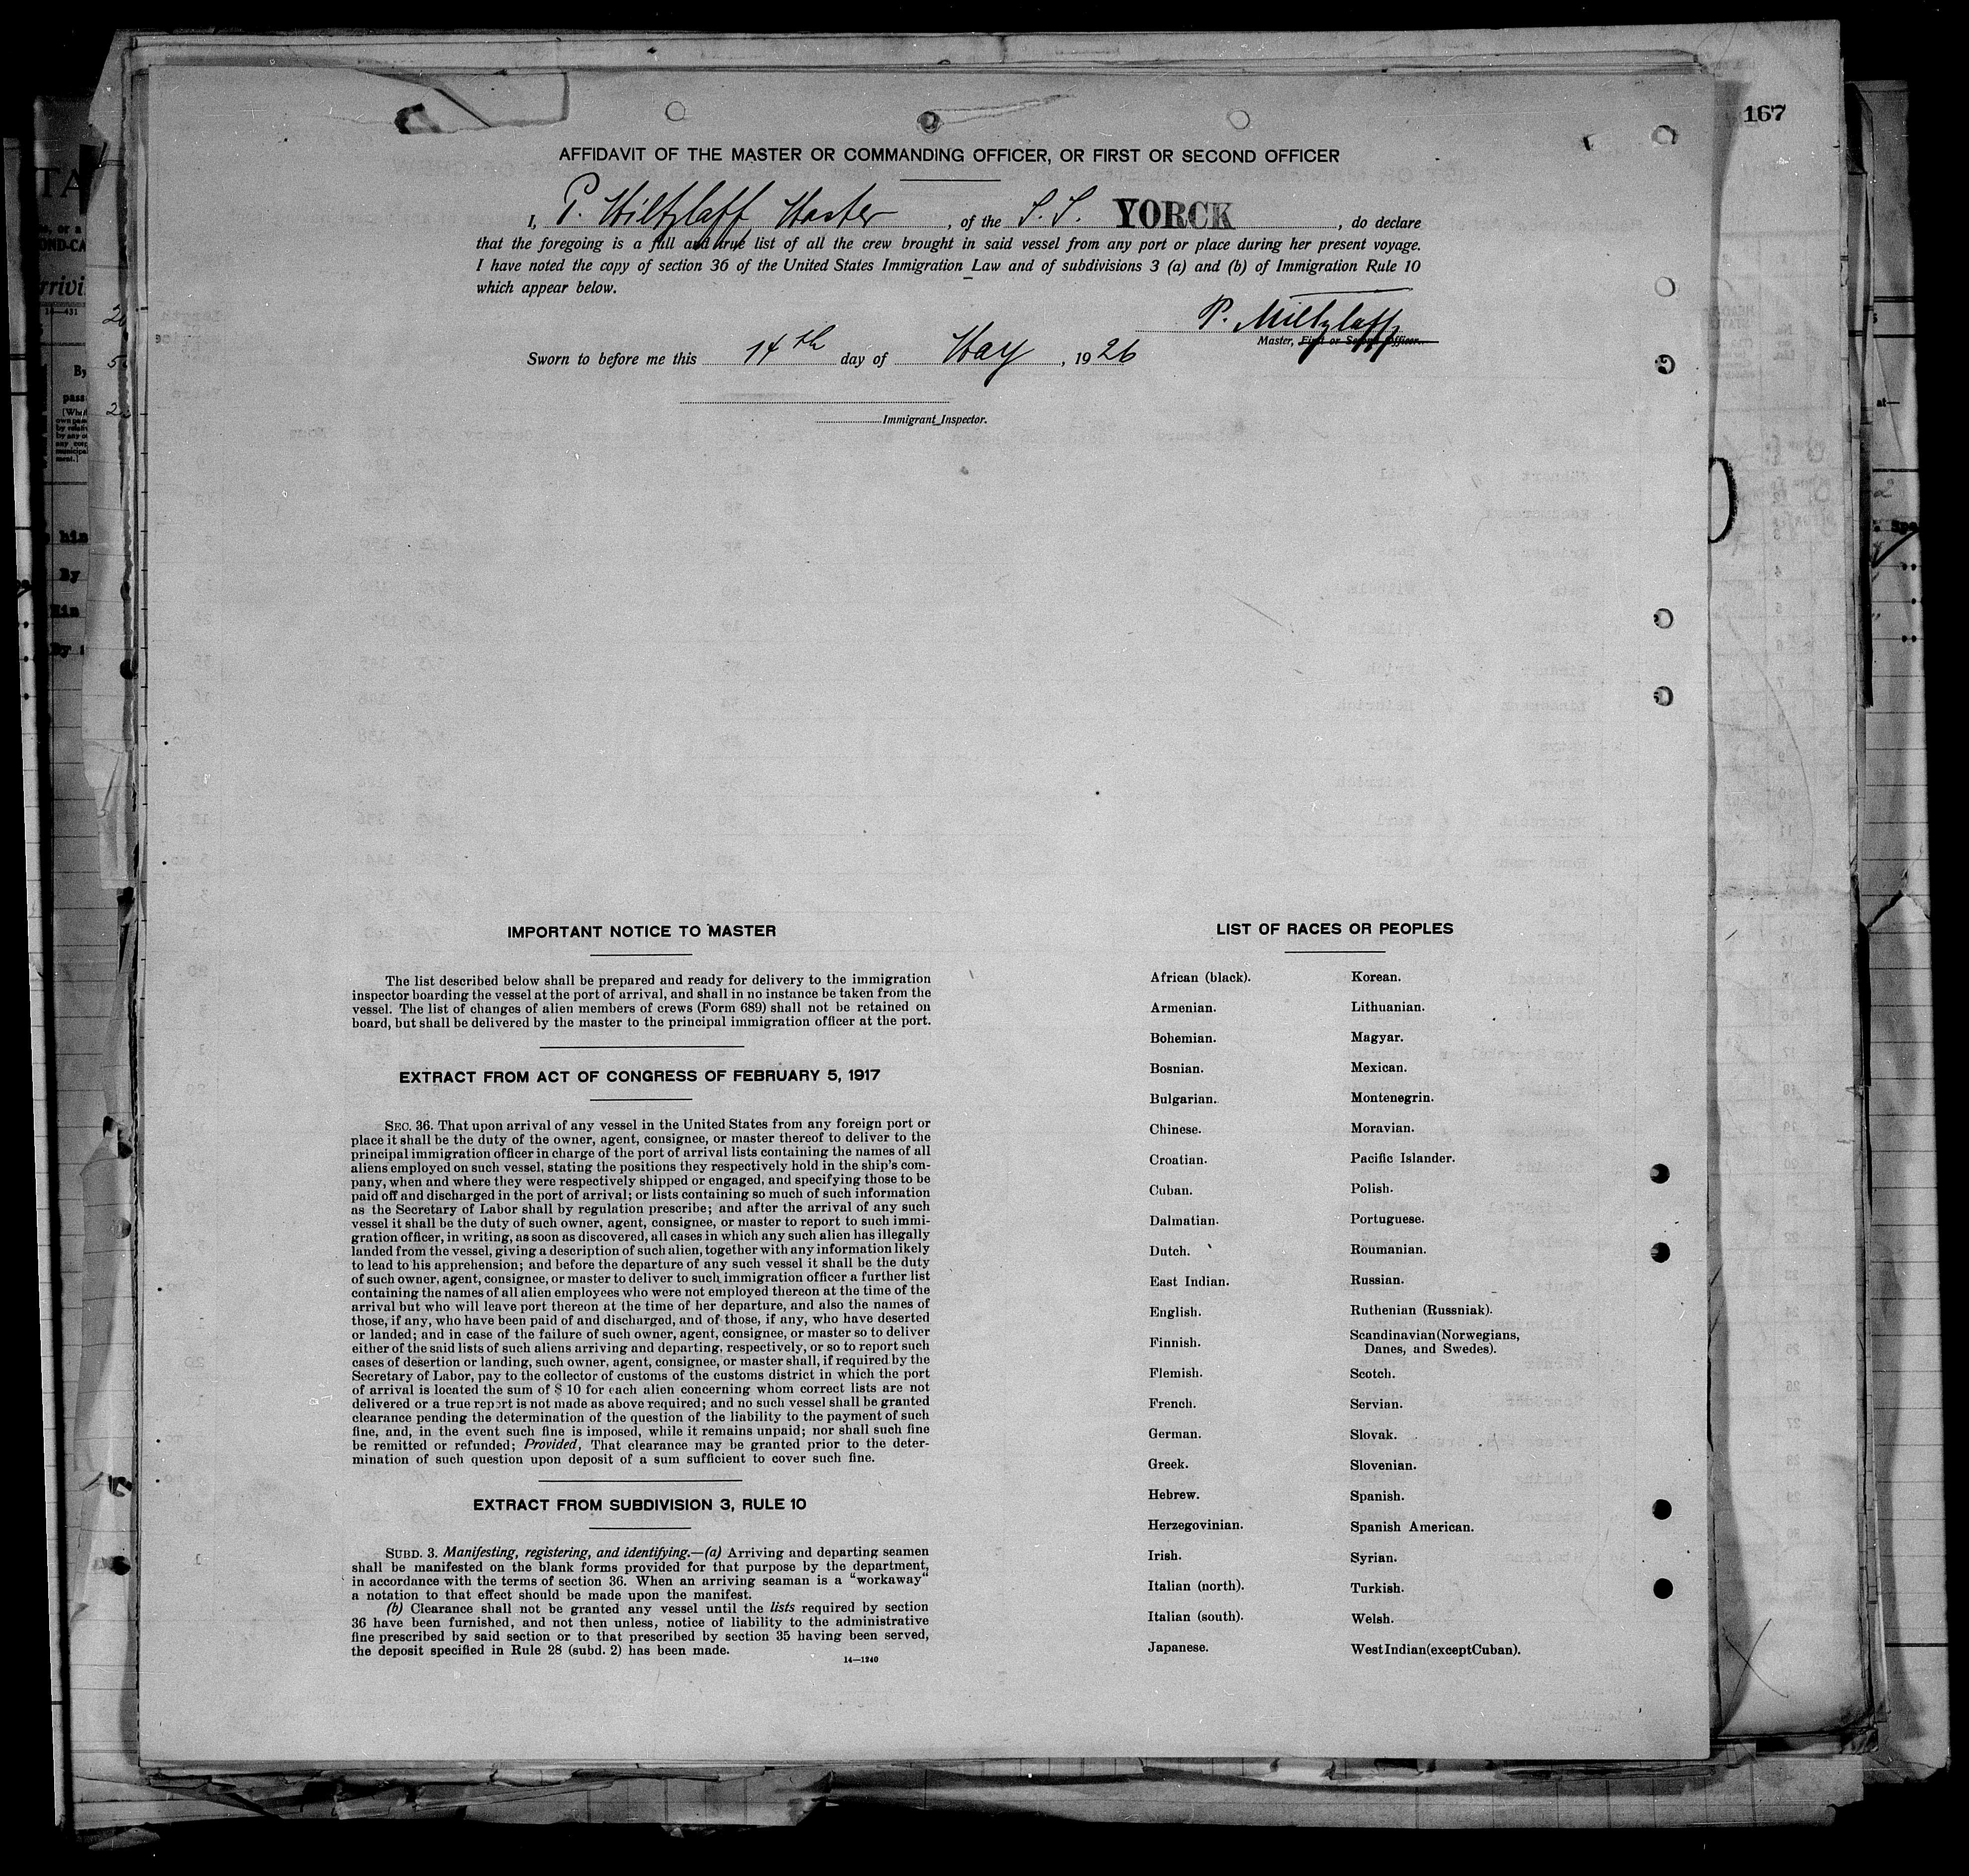 167
AFFIDAVIT OF THE MASTER OR COMMANDING OFFICER, OR FIRST OR SECOND OFFICER
I, P. Wiltzlaff, Master, of the S.S. YORCK, do declare
that the foregoing is a full and true list of all the crew brought in said vessel from any port or place during her present voyage.
I have noted the copy of section 36 of the United States Immigration Law and of subdivisions 3 (a) and (b) of Immigration Rule 10
which appear below.
P. Miltzlaff
Master, First or Second Officer.
Sworn to before me this 14th day of May, 1926
Immigrant Inspector.
IMPORTANT NOTICE TO MASTER
The list described below shall be prepared and ready for delivery to the immigration
inspector boarding the vessel at the port of arrival, and shall in no instance be taken from the
vessel. The list of changes of alien members of crews (Form 689) shall not be retained on
board, but shall be delivered by the master to the principal immigration officer at the port.
EXTRACT FROM ACT OF CONGRESS OF FEBRUARY 5, 1917
SEC. 36. That upon arrival of any vessel in the United States from any foreign port or
place it shall be the duty of the owner, agent, consignee, or master thereof to deliver to the
principal immigration officer in charge of the port of arrival lists containing the names of all
aliens employed on such vessel, stating the positions they respectively hold in the ship's com-
pany, when and where they were respectively shipped or engaged, and specifying those to be
paid off and discharged in the port of arrival; or lists containing so much of such information
as the Secretary of Labor shall by regulation prescribe; and after the arrival of any such
vessel it shall be the duty of such owner, agent, consignee, or master to report to such immi-
gration officer, in writing, as soon as discovered, all cases in which any such alien has illegally
landed from the vessel, giving a description of such alien, together with any information likely
to lead to his apprehension; and before the departure of any such vessel it shall be the duty
of such owner, agent, consignee, or master to deliver to such immigration officer a further list
containing the names of all alien employees who were not employed thereon at the time of the
arrival but who will leave port thereon at the time of her departure, and also the names of
those, if any, who have been paid of and discharged, and of those, if any, who have deserted
or landed; and in case of the failure of such owner, agent, consignee, or master so to deliver
either of the said lists of such aliens arriving and departing, respectively, or so to report such
cases of desertion or landing, such owner, agent, consignee, or master shall, if required by the
Secretary of Labor, pay to the collector of customs of the customs district in which the port
of arrival is located the sum of $ 10 for each alien concerning whom correct lists are not
delivered or a true report is not made as above required; and no such vessel shall be granted
clearance pending the determination of the question of the liability to the payment of such
fine, and, in the event such fine is imposed, while it remains unpaid; nor shall such fine
be remitted or refunded; Provided, That clearance may be granted prior to the deter-
mination of such question upon deposit of a sum sufficient to cover such fine.
EXTRACT FROM SUBDIVISION 3, RULE 10
SUBD. 3. Manifesting, registering, and identifying.—(a) Arriving and departing seamen
shall be manifested on the blank forms provided for that purpose by the department,
in accordance with the terms of section 36. When an arriving seaman is a "workaway"
a notation to that effect should be made upon the manifest.
(b) Clearance shall not be granted any vessel until the lists required by section
36 have been furnished, and not then unless, notice of liability to the administrative
fine prescribed by said section or to that prescribed by section 35 having been served,
the deposit specified in Rule 28 (subd. 2) has been made.
14—1240
LIST OF RACES OR PEOPLES
African (black).
Armenian.
Bohemian.
Bosnian.
Bulgarian.
Chinese.
Croatian.
Cuban.
Dalmatian.
Dutch.
East Indian.
English.
Finnish.
Flemish.
French.
German.
Greek.
Hebrew.
Herzegovinian.
Irish.
Italian (north).
Italian (south).
Japanese.
Korean.
Lithuanian.
Magyar.
Mexican.
Montenegrin.
Moravian.
Pacific Islander.
Polish.
Portuguese.
Roumanian.
Russian.
Ruthenian (Russniak).
Scandinavian (Norwegians,
Danes, and Swedes).
Scotch.
Servian.
Slovak.
Slovenian.
Spanish.
Spanish American.
Syrian.
Turkish.
Welsh.
West Indian (except Cuban).